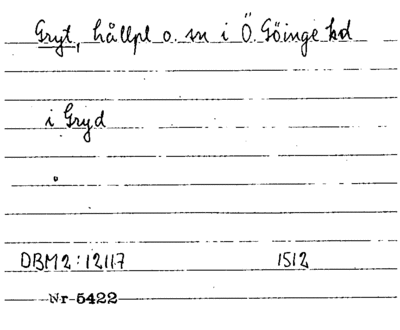 Gryt, hållpl o. sn i Ö. Göinge hd
i Gryd
DBM2:12117 1512
Nr 5422